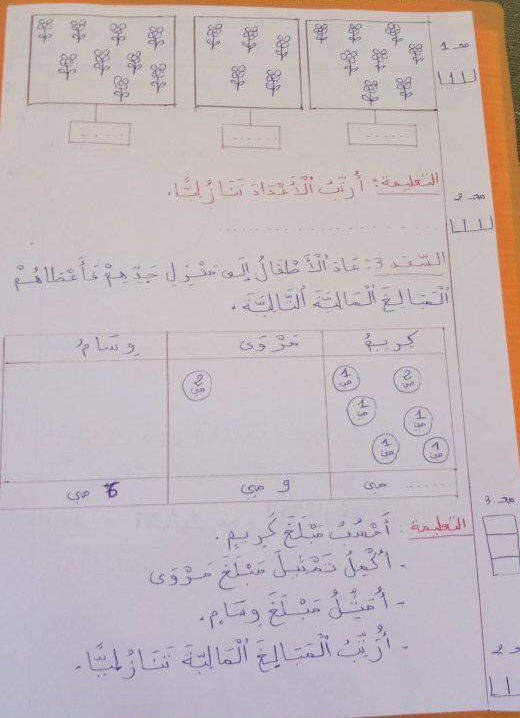 مع 1
.....
.....
.....
التعليمة: أُرَتِّبُ الْأَعْدَادَ تَنَازُلِيًّا.
مع 2
السّند 3: عَادَ الْأَطْفَالُ إِلَى مَنْزِلِ جَدِّهِمْ فَأَعْطَاهُمْ
الْمَبَالِغَ الْمَالِيَّةَ التَّالِيَةَ.
كريمٌ مَرْوَى وِسَام
2 مي 1 مي 2 مي
1 مي 1 مي
1 مي 1 مي
..... مي 9 مي 6 مي
مع 3
التعليمة: أَحْسُبُ مَبْلَغَ كَرِيمٍ.
- أُكْمِلُ تَمْثِيلَ مَبْلَغَ مَرْوَى
- أُمَثِّلُ مَبْلَغَ وِسَامٍ.
- أُرَتِّبُ الْمَبَالِغَ الْمَالِيَّةَ تَنَازُلِيًّا.
مع 2